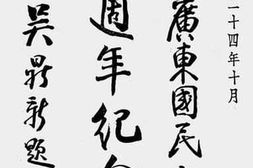 一十四年十月
廣東國民
週年紀
吳鼎新題